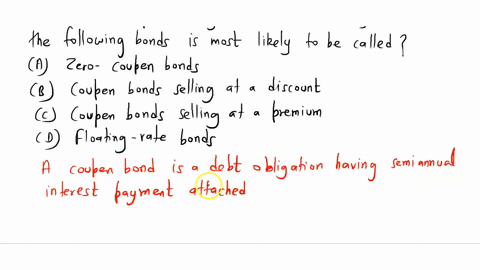 the following bonds is most likely to be called?
(A) Zero- Coupen bonds
(B) Coupen bonds selling at a discount
(C) Coupen bonds selling at a premium
(D) Floating-rate bonds
A coupen bond is a debt obligation having semiannual
interest payment attached